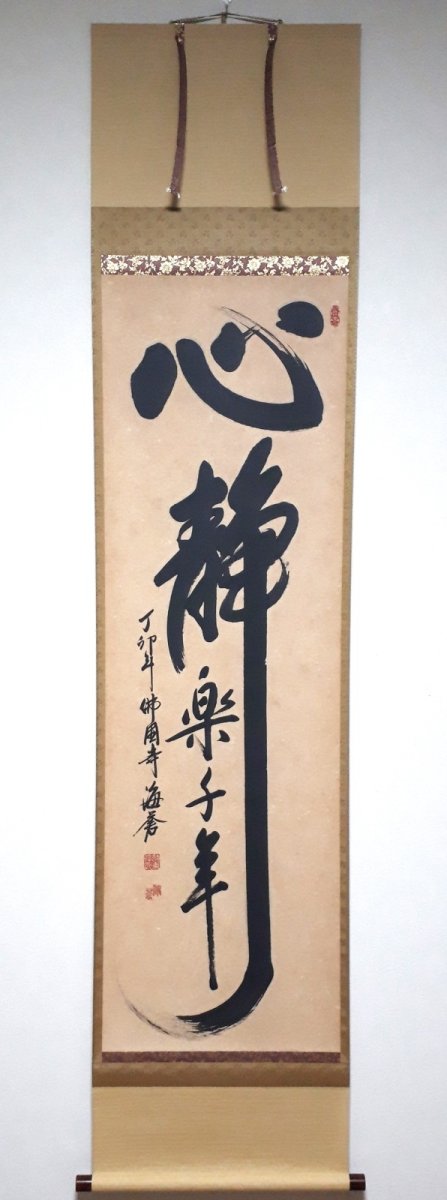 心静楽千年
丁卯年 佛國寺 海蒼